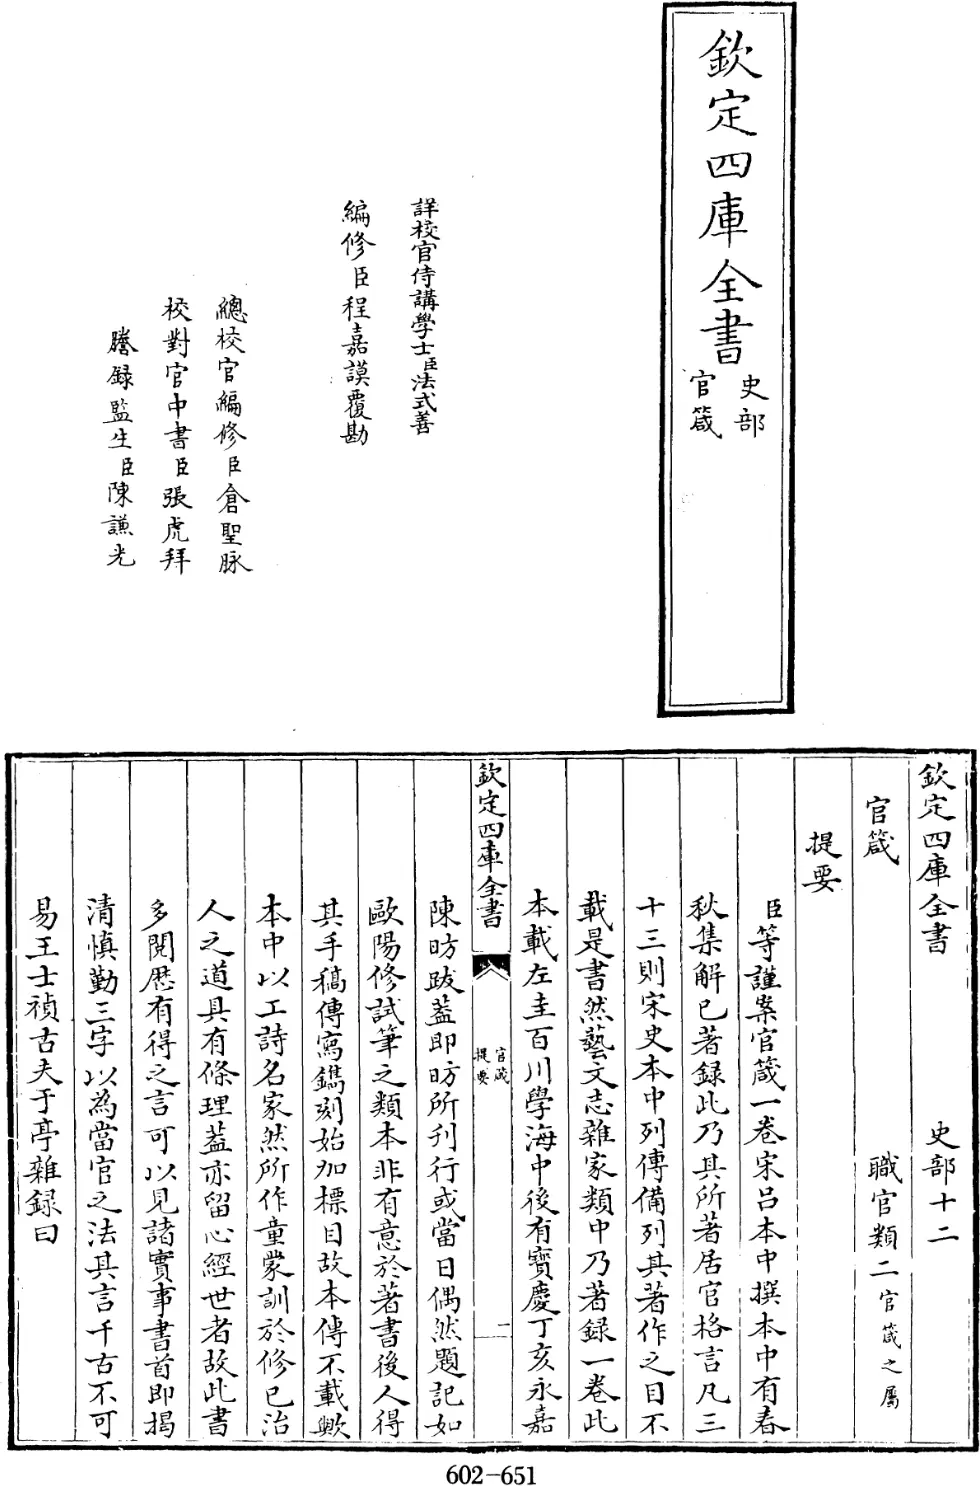 欽定四庫全書
史部
官箴
詳校官侍講學士臣法式善
編修臣程嘉謨覆勘
總校官編修臣倉聖脉
校對官中書臣張虎拜
謄録監生臣陳謙光
欽定四庫全書 史部十二
官箴 職官類二官箴之屬
提要
臣等謹案官箴一卷宋吕本中撰本中有春
秋集解已著録此乃其所著居官格言凡三
十三則宋史本中列傳備列其著作之目不
載是書然藝文志雜家類中乃著録一卷此
本載左圭百川學海中後有寶慶丁亥永嘉
欽定四庫全書 官箴 提要 一
陳昉跋蓋即昉所刊行或當日偶然題記如
歐陽修試筆之類本非有意於著書後人得
其手稿傳寫鐫刻始加標目故本傳不載歟
本中以工詩名家然所作童蒙訓於修已治
人之道具有條理蓋亦留心經世者故此書
多閱歷有得之言可以見諸實事書首即揭
清慎勤三字以為當官之法其言千古不可
易王士禎古夫于亭雜録曰
602-651